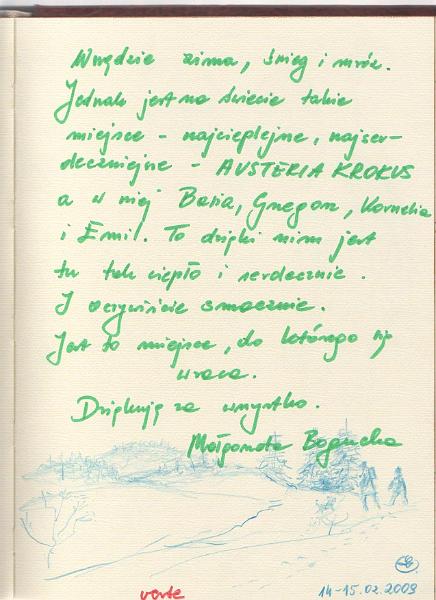 Wszędzie zima, śnieg i mróz.
Jednak jest na świecie takie
miejsce - najcieplejsze, najser-
deczniejsze - AUSTERIA KROKUS
a w niej Basia, Grzegorz, Kornelia
i Emil. To dzięki nim jest
tu tak ciepło i serdecznie.
I oczywiście smacznie.
Jest to miejsce, do którego się
wraca.
Dziękuję za wszystko.
Małgorzata Bogucka
verte
14-15.02.2009